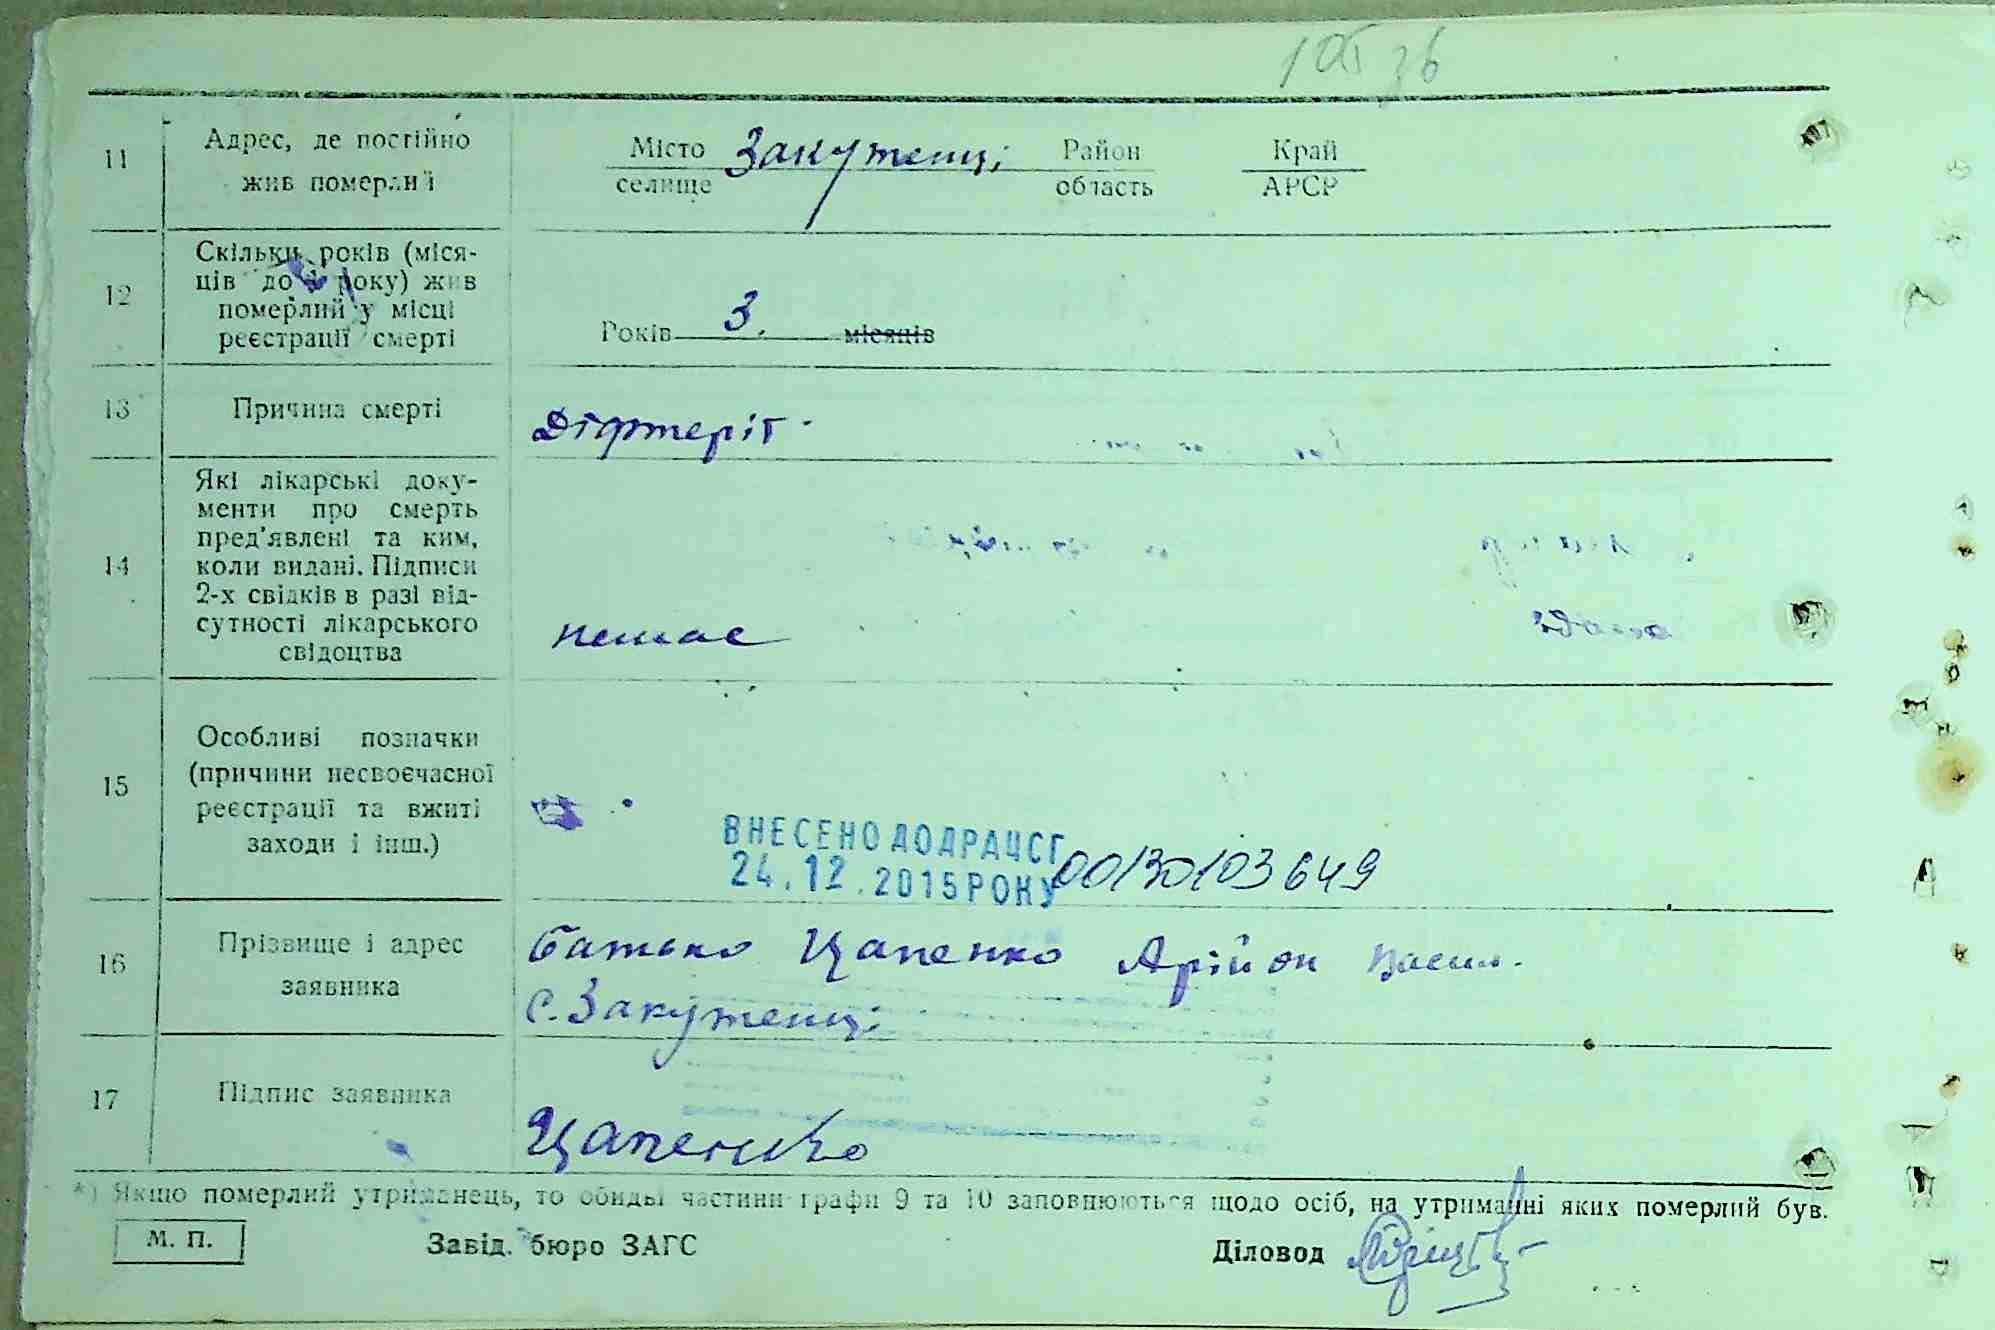 105 зв
11
Адрес, де постійно
жив померлий
Місто Закутенці Район Край
селище область АРСР
12
Скільки років (міся-
ців до 1 року) жив
померлий у місці
реєстрації смерті
Років 3. місяців
13
Причина смерті
Діфтеріт.
14
Які лікарські доку-
менти про смерть
пред'явлені та ким,
коли видані. Підписи
2-х свідків в разі від-
сутності лікарського
свідоцтва
немає
15
Особливі позначки
(причини несвоєчасної
реєстрації та вжиті
заходи і інш.)
ВНЕСЕНО ДО ДРАЦСГ
24.12.2015 РОКУ 00130103649
16
Прізвище і адрес
заявника
батько Цапенко Арійон Васил.
с. Закутенці
17
Підпис заявника
Цапенко
*) Якщо померлий утриманець, то обидві частини графи 9 та 10 заповнюються щодо осіб, на утриманні яких померлий був.
М. П.
Завід. бюро ЗАГС
Діловод